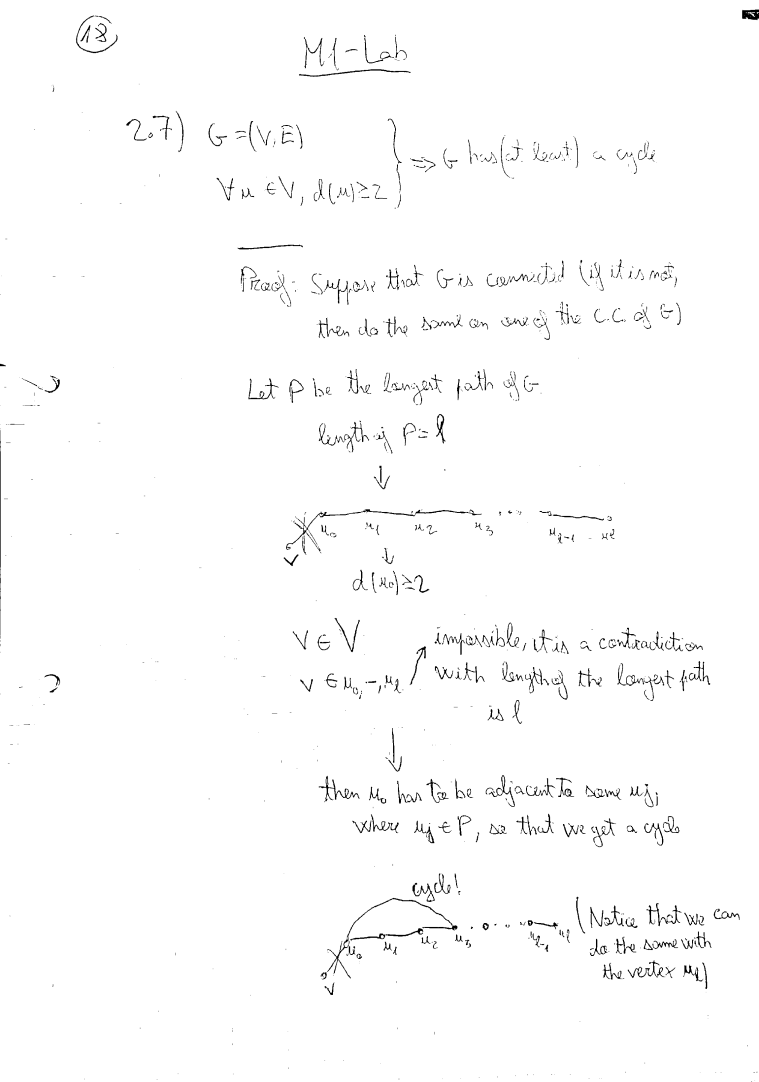 18
M1-Lab
2.7) G=(V,E)
∀u ∈V, d(u)≥2 } ⇒ G has (at least) a cycle
Proof: Suppose that G is connected (if it is not,
then do the same on one of the C.C. of G)
Let P be the longest path of G
length of P = l
↓
u0 u1 u2 u3 ... ul-1 ul
v
↓
d(u0)≥2
v ∈ V
impossible, it is a contradiction
v ∈ u0,-,ul
with length of the longest path
is l
↓
then u0 has to be adjacent to some uj,
where uj ∈ P, so that we get a cycle
cycle!
u0 u1 u2 u3 ... ul-1 ul
v
(Notice that we can
do the same with
the vertex ul)